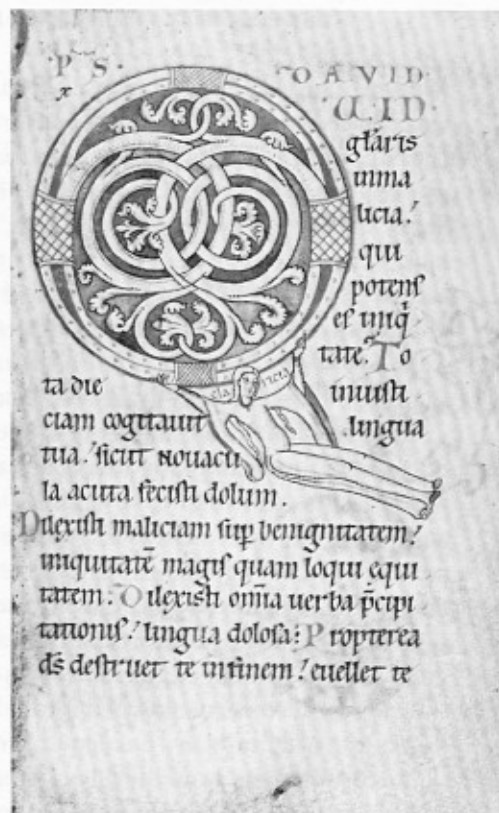 PS. DAVID
x
QUID
głaris
inma
licia!
qui
potens
es iniq̃
tate. To
ta die iniusti
claricia
ciam cogitauit lingua
tua! sicut nouacu
la acuta fecisti dolum.
Dilexisti maliciam sup benignitatem!
iniquitatẽ magis quam loqui ęqui
tatem: Dilexisti om̃ia uerba p̃cipi
tationis! lingua dolosa: Propterea
d̃s destruet te infinem! euellet te